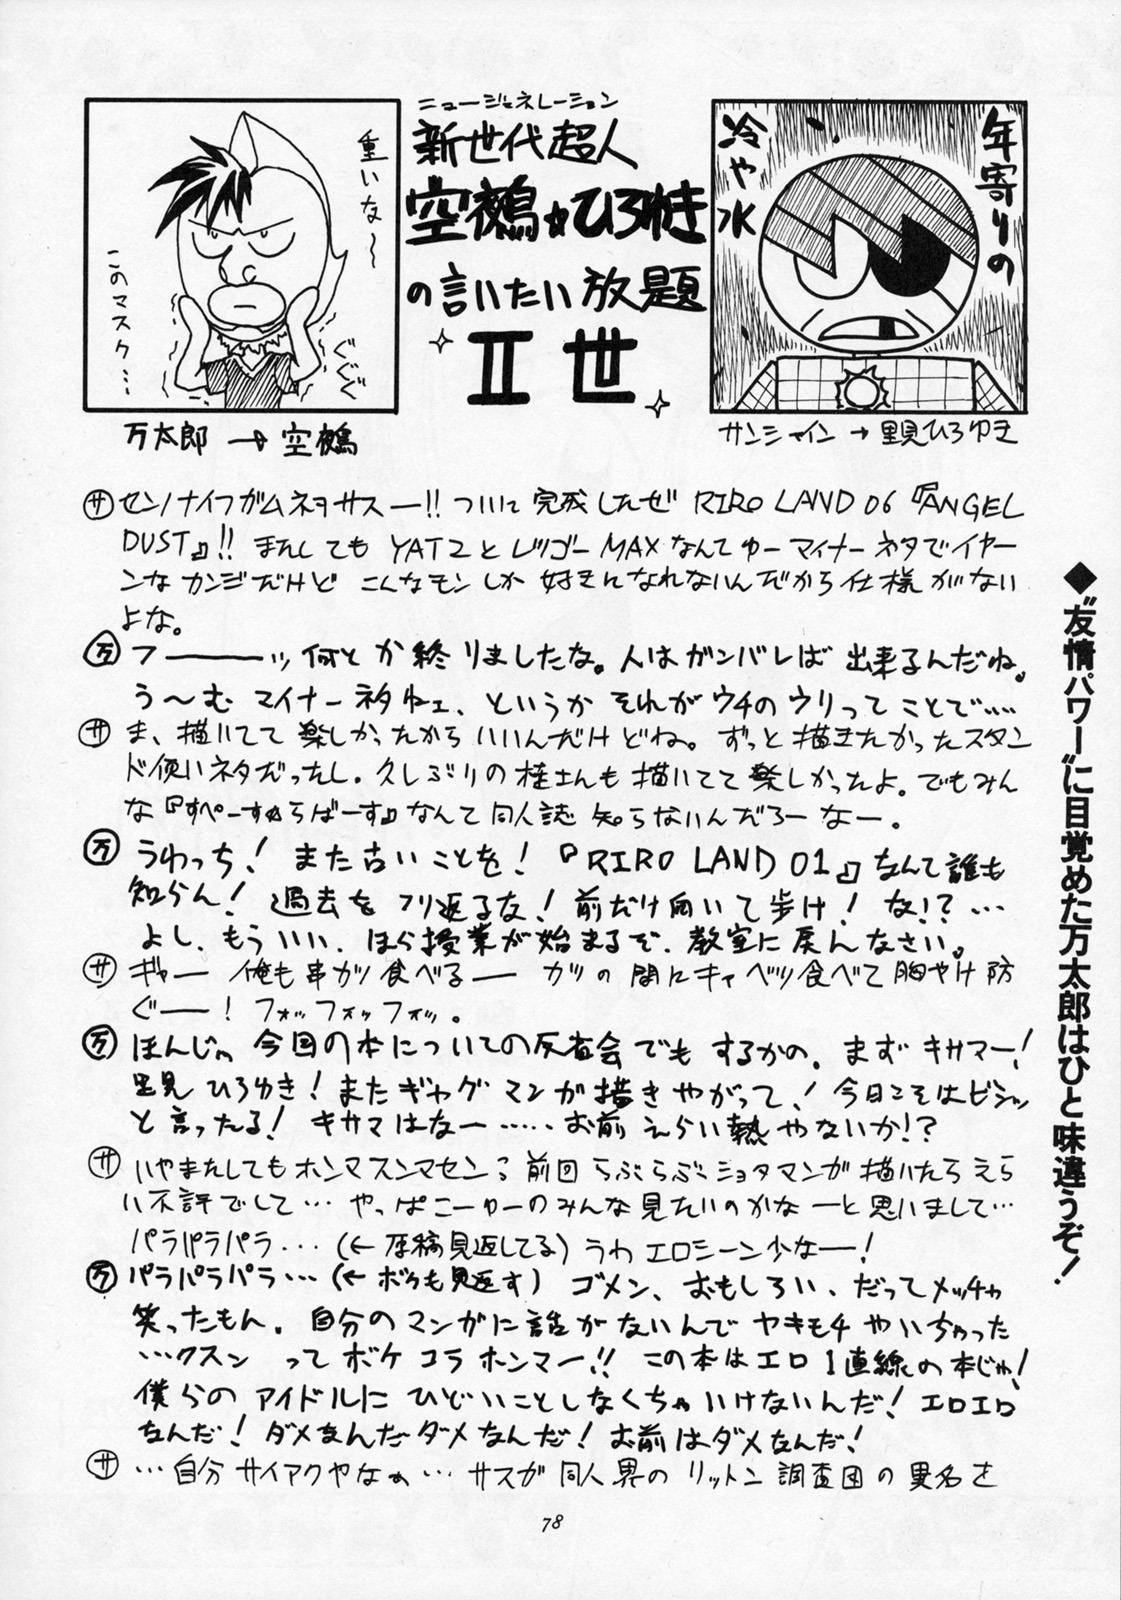 ニュージェネレーション
新世代超人
空鵺☆ひろゆき
の言いたい放題
II世
重いな〜
このマスク…
ぐぐぐ
万太郎→空鵺
年寄りの
冷や水
サンシャイン→里見ひろゆき
サ センノナイフガムネヲサスー!! ついに完成したぜ RIRO LAND 06『ANGEL
DUST』!! またしても YAT2とレツゴーMAXなんてゆーマイナーネタでイヤー
ンなカンジだけど こんなモンしか好きになれないんだから仕様がない
よな。
万 フ———ッ何とか終りましたな。人はガンバレば出来るんだね。
う〜む マイナーネタねェ、というかそれがウチのウリってことで……
サ ま、描いてて楽しかったからいいんだけどね。ずっと描きたかったスタン
ド使いネタだったし。久しぶりの桂さんも描いてて楽しかったよ。でもみん
な『すぺーす☆らばーす』なんて同人誌知らないんだろーなー。
万 うわっち! また古いことを!『RIRO LAND 01』なんて誰も
知らん! 過去をフリ返るな! 前だけ向いて歩け! な!?…
よし、もういい、ほら授業が始まるぞ、教室に戻んなさい。
サ ギャー 俺も串カツ食べるー カツの間にキャベツ食べて胸やけ防
ぐー! フォッフォッフォッ。
万 ほんじゃ 今回の本についての反省会でもするかの。まずキサマー!
里見ひろゆき! またギャグマンガ描きやがって! 今日こそはビシッ
と言ったる! キサマはなー……お前えらい熱やないか!?
サ いやまたしてもホンマスンマセン: 前回らぶらぶショタマンガ描いたらえら
い不評でして… やっぱこーゆーのみんな見たいのかなーと思いまして…
パラパラパラ…(←原稿見返してる)うわエロシーン少なー!
万 パラパラパラ…(←ボクも見返す) ゴメン、おもしろい、だってメッチャ
笑ったもん。自分のマンガに話がないんでヤキモチやいちゃった
…クスン ってボケコラホンマー!! この本はエロ1直線の本じゃ!
僕らのアイドルにひどいことしなくちゃいけないんだ! エロエロ
なんだ! ダメなんだダメなんだ! お前はダメなんだ!
サ …自分サイアクやなぁ…サスガ同人界のリットン調査団の異名を
◆“友情パワー”に目覚めた万太郎はひと味違うぞ!
78